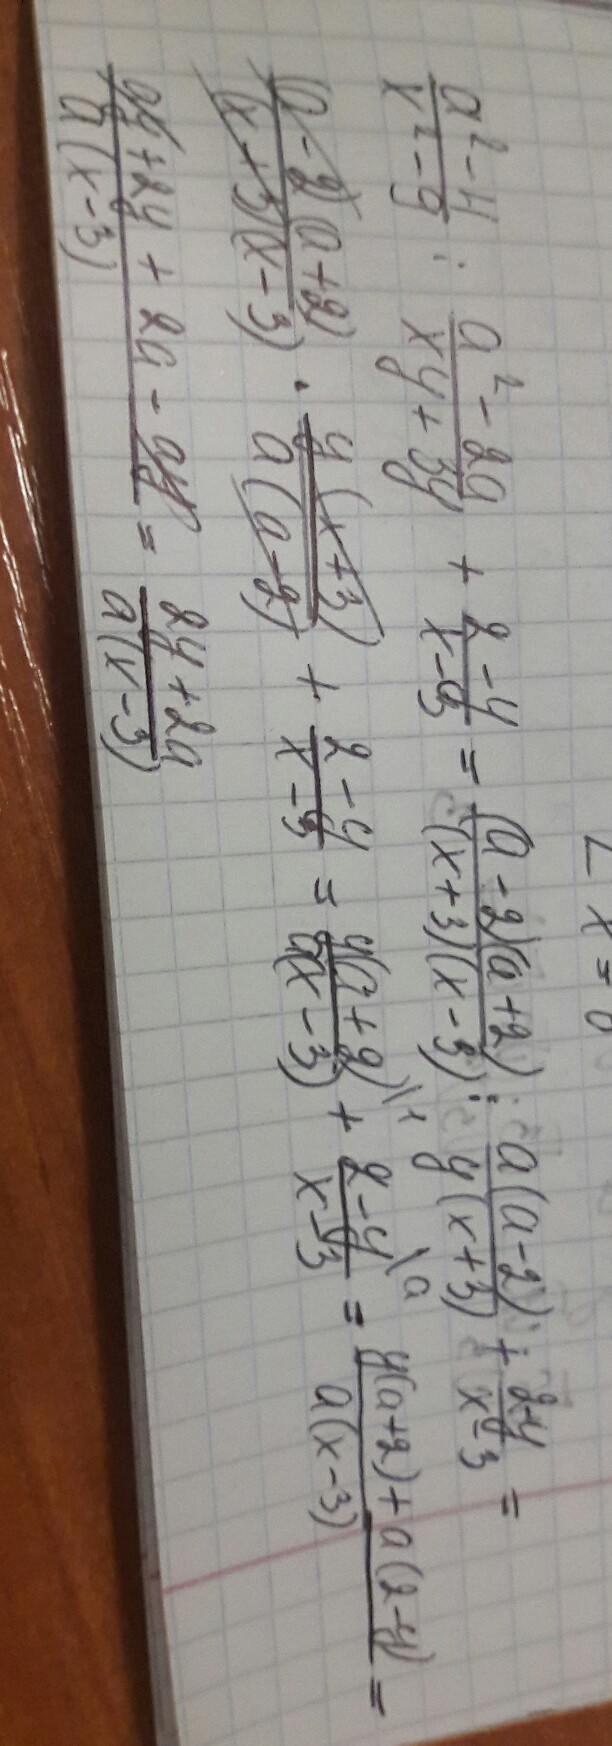 x = 0
(a² - 4)/(x² - 9) : (a² - 2a)/(xy + 3y) + (2 - y)/(x - 3) = ((a - 2)(a + 2))/((x + 3)(x - 3)) : (a(a - 2))/(y(x + 3)) + (2 - y)/(x - 3) =
((a - 2)(a + 2))/((x + 3)(x - 3)) · (y(x + 3))/(a(a - 2)) + (2 - y)/(x - 3) = (y(a + 2))/(a(x - 3)) \1 + (2 - y)/(x - 3) \a = (y(a + 2) + a(2 - y))/(a(x - 3)) =
(ay + 2y + 2a - ay)/(a(x - 3)) = (2y + 2a)/(a(x - 3))